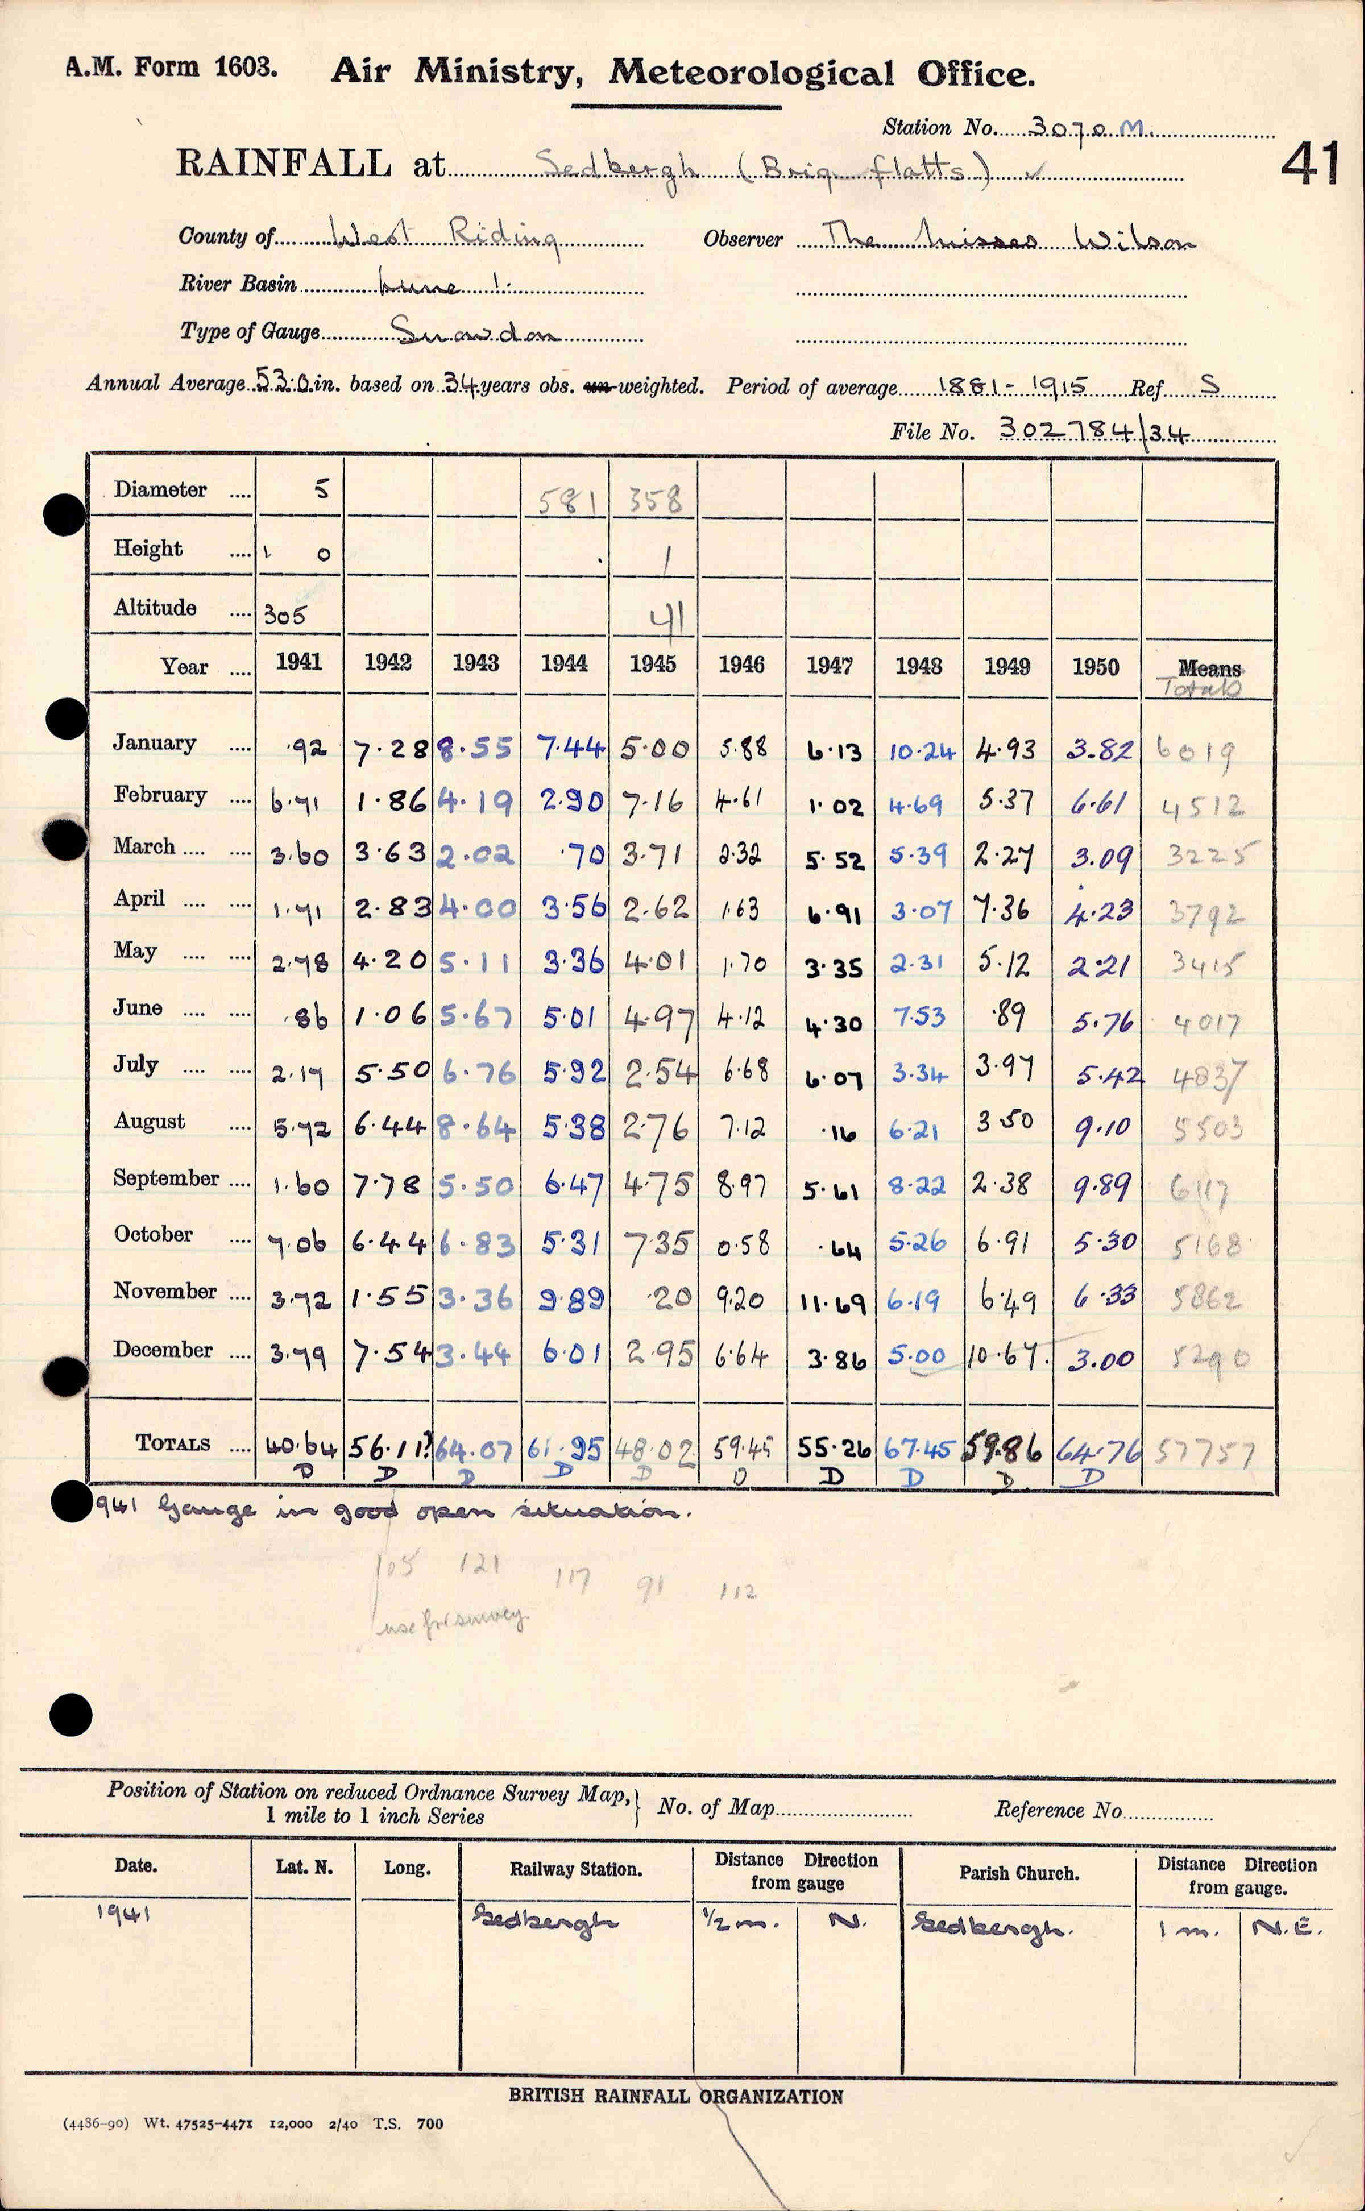 A.M. Form 1603. Air Ministry, Meteorological Office.
Station No. 3070 M.
41
RAINFALL at Sedbergh (Brigflatts) ✓
County of West Riding Observer The Misses Wilson
River Basin Lune 1.
Type of Gauge Snowdon
Annual Average 53.0 in. based on 34 years obs. un-weighted. Period of average 1881-1915 Ref. S
File No. 302784/34
Diameter .... 5 581 358
Height .... 1 0 1
Altitude .... 305 41
Year .... 1941 1942 1943 1944 1945 1946 1947 1948 1949 1950 Means
Totals
January .... .92 7.28 8.55 7.44 5.00 5.88 6.13 10.24 4.93 3.82 6019
February .... 6.71 1.86 4.19 2.90 7.16 4.61 1.02 4.69 5.37 6.61 4512
March .... .... 3.60 3.63 2.02 .70 3.71 2.32 5.52 5.39 2.27 3.09 3225
April .... .... 1.71 2.83 4.00 3.56 2.62 1.63 6.91 3.07 7.36 4.23 3792
May .... .... 2.78 4.20 5.11 3.36 4.01 1.70 3.35 2.31 5.12 2.21 3415
June .... .... .86 1.06 5.67 5.01 4.97 4.12 4.30 7.53 .89 5.76 4017
July .... .... 2.17 5.50 6.76 5.92 2.54 6.68 6.07 3.34 3.97 5.42 4837
August .... 5.72 6.44 8.64 5.38 2.76 7.12 .16 6.21 3.50 9.10 5503
September .... 1.60 7.78 5.50 6.47 4.75 8.97 5.61 8.22 2.38 9.89 6117
October .... 7.06 6.44 6.83 5.31 7.35 0.58 .64 5.26 6.91 5.30 5168
November .... 3.72 1.55 3.36 9.89 .20 9.20 11.69 6.19 6.49 6.33 5862
December .... 3.79 7.54 3.44 6.01 2.95 6.64 3.86 5.00 10.67. 3.00 5290
TOTALS .... 40.64 56.11? 64.07 61.95 48.02 59.45 55.26 67.45 59.86 64.76 57757
D D D D D D D D D D
941 Gauge in good open situation.
105 121 117 91 112
use for survey
Position of Station on reduced Ordnance Survey Map, } No. of Map Reference No.
1 mile to 1 inch Series
Date. Lat. N. Long. Railway Station. Distance Direction from gauge Parish Church. Distance Direction from gauge.
1941 Sedbergh 1/2 m. N. Sedbergh. 1 m. N.E.
BRITISH RAINFALL ORGANIZATION
(4486-90) Wt. 47525-4471 12,000 2/40 T.S. 700